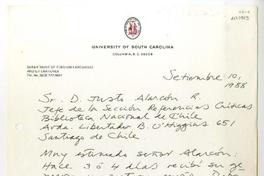 UNIVERSITY OF SOUTH CAROLINA
COLUMBIA, S. C. 29208
DEPARTMENT OF FOREIGN LANGUAGES
AND LITERATURES
Setiembre 10,
1988
Sr. D. Justo Alarcón R.
Jefe de la Sección Referencias Críticas
Biblioteca Nacional de Chile
Avda. Libertador B. O'Higgins 651
Santiago de Chile
Muy estimado señor Alarcón,
Hace 3 ó 4 días recibí su